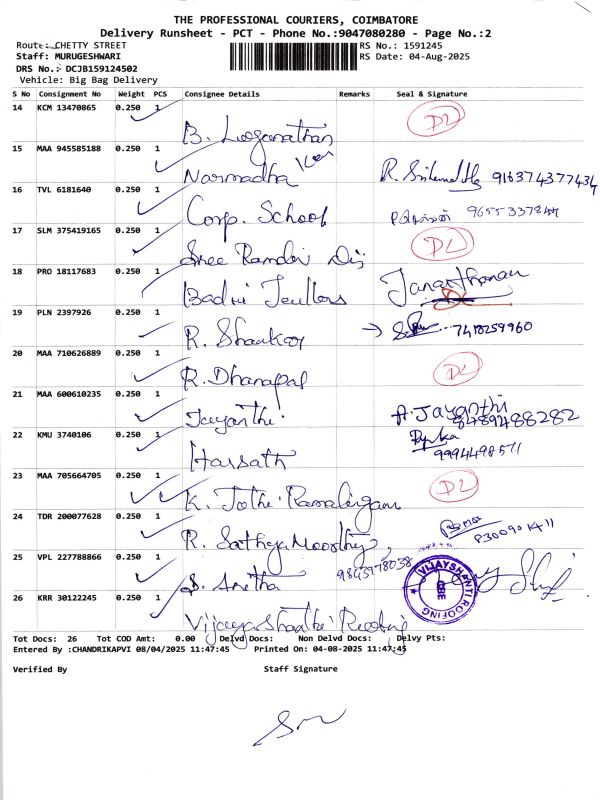 THE PROFESSIONAL COURIERS, COIMBATORE
Delivery Runsheet - PCT - Phone No.:9047080280 - Page No.:2
Route: CHETTY STREET RS No.: 1591245
Staff: MURUGESHWARI RS Date: 04-Aug-2025
DRS No.: DCJB159124502
Vehicle: Big Bag Delivery
S No Consignment No Weight PCS Consignee Details Remarks Seal & Signature
14 KCM 13470865 0.250 1 B. Loganathan D2
15 MAA 945585188 0.250 1 Narmadha R. 916374377434
16 TVL 6181640 0.250 1 Corp. School 9655337844
17 SLM 375419165 0.250 1 Sree
18 PRO 18117683 0.250 1 Badri Jewllers Janarthanan
19 PLN 2397926 0.250 1 R. Shankar 7418259960
20 MAA 710626889 0.250 1 R. Dhanapal D2
21 MAA 600610235 0.250 1 Jayanthi A. Jayanthi 8489488282
22 KMU 3740106 0.250 1 Harsath 9994498571
23 MAA 705664705 0.250 1 K. Jothi Ramalingam D2
24 TDR 200077628 0.250 1 R. Sathya Moorthy
25 VPL 227788866 0.250 1 S. 9843978038
26 KRR 30122245 0.250 1 Vijaya Shanthi Roofing VIJAYSHANTI ROOFING CBE
Tot Docs: 26 Tot COD Amt: 0.00 Delvd Docs: Non Delvd Docs: Delvy Pts:
Entered By :CHANDRIKAPVI 08/04/2025 11:47:45 Printed On: 04-08-2025 11:47:45
Verified By Staff Signature